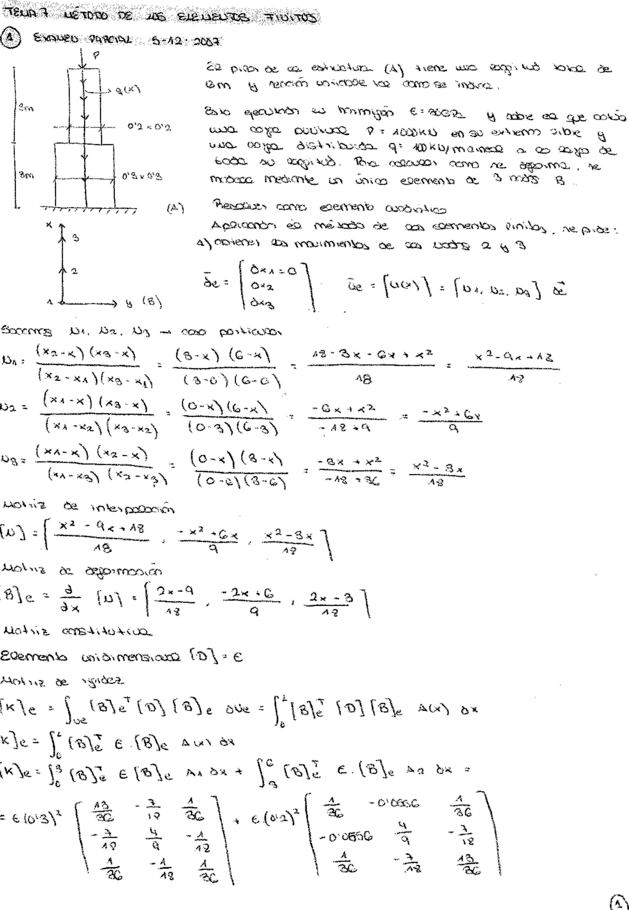 TEMA 7 MÉTODO DE LOS ELEMENTOS FINITOS
1 EXAMEN PARCIAL 5-12-2007
P
q(x)
3m
0'2 x 0'2
3m
0'3 x 0'3
(A)
x
3
2
1
y (B)
El pilar de la estructura (A) tiene una longitud total de
6m y sección variable tal como se indica.
Está ejecutado en hormigón E=30GPa y sobre él que actúa
una carga puntual P = 1000kN en su extremo libre y
una carga distribuida q= 10kN/m a lo largo de
toda su longitud. Para calcular como se deforma, se
modela mediante un único elemento de 3 nodos B.
Resolver como elemento cuadrático
Aplicando el método de los elementos finitos, se pide:
1) obtener los movimientos de los nodos 2 y 3
δe = [δx1=0 δx2 δx3] ue = [u(x)] = [N1, N2, N3] δe
Sacamos N1, N2, N3 → caso particular
N1 = (x2-x)(x3-x) / (x2-x1)(x3-x1) = (3-x)(6-x) / (3-0)(6-0) = 18-3x-6x+x² / 18 = x²-9x+18 / 18
N2 = (x1-x)(x3-x) / (x1-x2)(x3-x2) = (0-x)(6-x) / (0-3)(6-3) = -6x+x² / -18+9 = -x²+6x / 9
N3 = (x1-x)(x2-x) / (x1-x3)(x2-x3) = (0-x)(3-x) / (0-6)(3-6) = -3x+x² / -18+36 = x²-3x / 18
Matriz de interpolación
[N] = [x²-9x+18 / 18 , -x²+6x / 9 , x²-3x / 18]
Matriz de deformación
[B]e = d/dx [N] = [2x-9 / 18 , -2x+6 / 9 , 2x-3 / 18]
Matriz constitutiva
Elemento unidimensional [D] = E
Matriz de rigidez
[K]e = ∫ve [B]eᵀ [D] [B]e dve = ∫₀ᴸ [B]eᵀ [D] [B]e A(x) dx
[K]e = ∫₀ᴸ [B]eᵀ E·[B]e A(x) dx
[K]e = ∫₀³ [B]eᵀ E [B]e A1 dx + ∫₃⁶ [B]eᵀ E·[B]e A2 dx =
= E(0'3)² [13/36 -7/18 1/36 -7/18 4/9 -1/18 1/36 -1/18 1/36] + E(0'2)² [1/36 -0'0556 1/36 -0'0556 4/9 -7/18 1/36 -7/18 13/36]
1